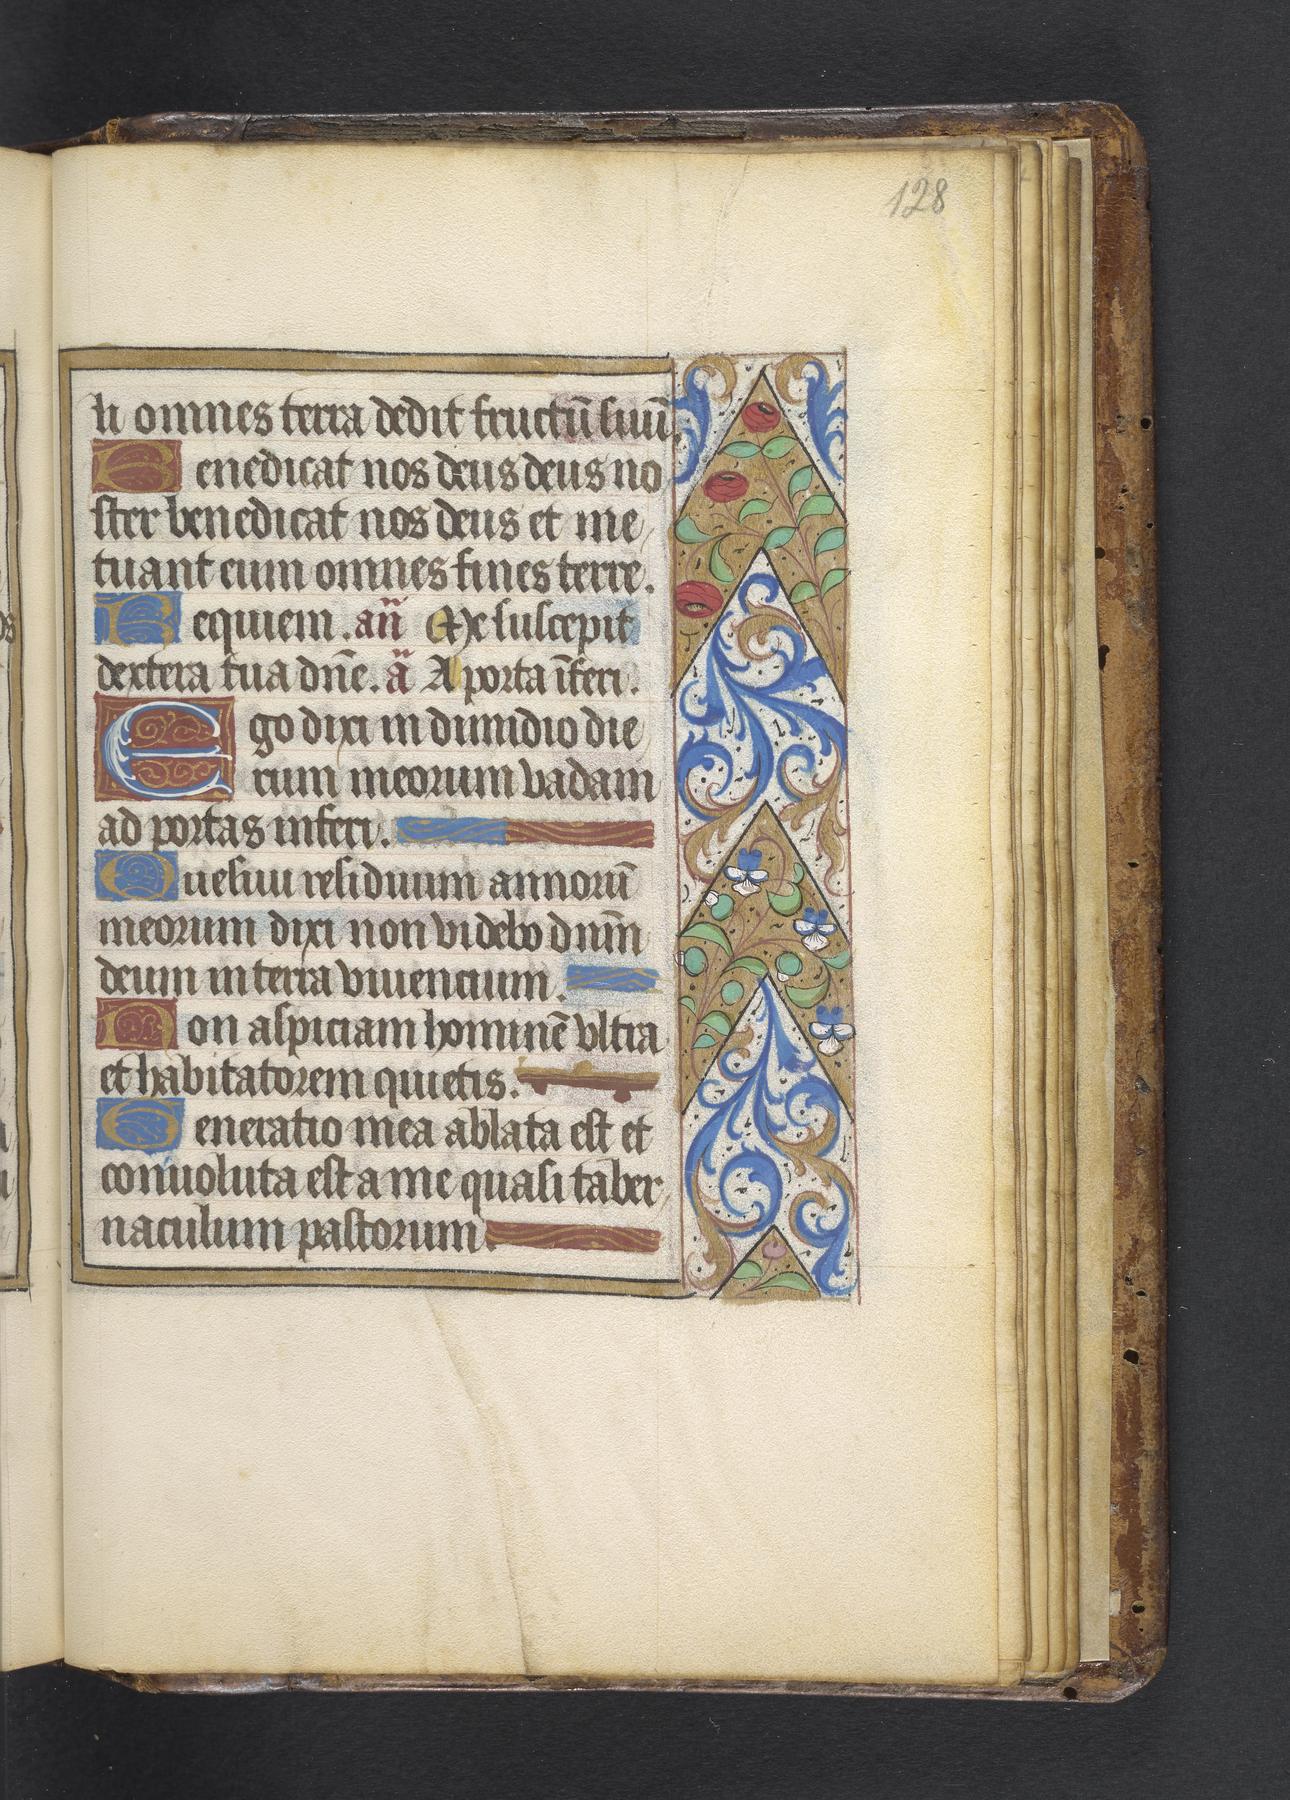 128
li omnes terra dedit fructū suū.
Benedicat nos deus deus no
ster benedicat nos deus et me
tuant eum omnes fines terre.
Requiem. añ Me suscepit
dextera tua dn̄e. ā A porta īferi.
Ego dixi in dimidio die
rum meorum vadam
ad portas inferi.
Quesiui residuum annorū
meorum dixi non videbo dnm̄
deum in terra viuencium.
Non aspiciam hominē vltra
et habitatorem quietis.
Generatio mea ablata est et
conuoluta est a me quasi taber
naculum pastorum.